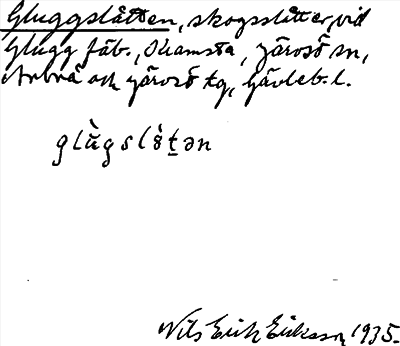 Gluggslåtten, skogsslåtter, vid
Glugg fäb., Skamsta, Järvsö sn,
Arbrå och Järvsö tg, Gävleb. l.
Nils Erik Eriksson 1935.